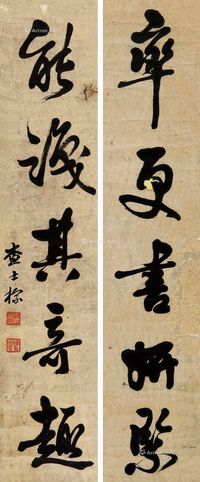 率更書妍緊
能識其奇趣
查士標